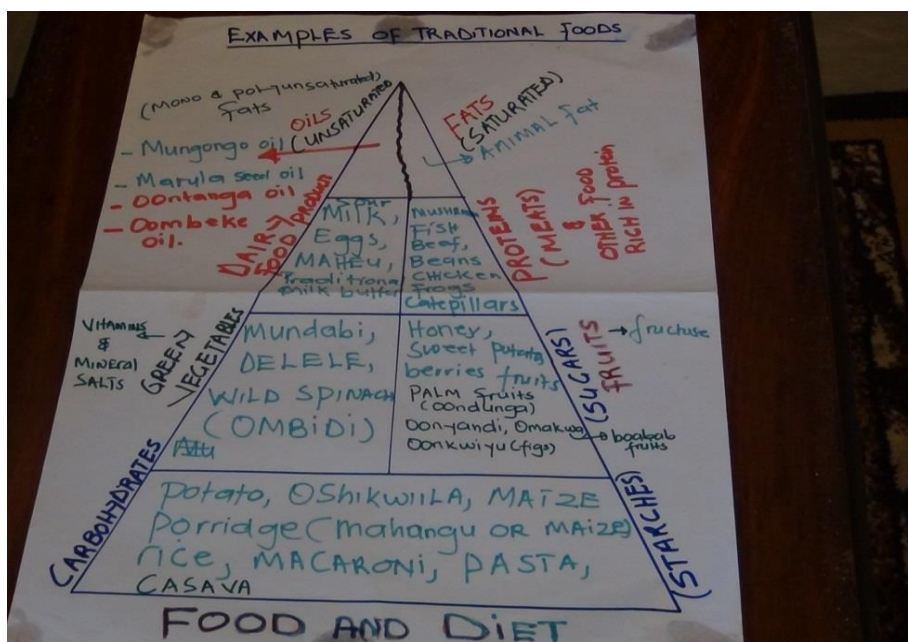 EXAMPLES OF TRADITIONAL FOODS
(MONO & POLYUNSATURATED)
fats
OILS
(UNSATURATED)
- Mungongo oil
- Marula seed oil
- OONTANGA oil
- OOMBEKE
oil.
FATS
(SATURATED)
ANIMAL fat
DAIRY
FOOD PRODUCT
SOUR
MILK,
Eggs,
MAHEU,
Traditional
milk butter
FISH
Beef,
Beans
CHICKEN
frogs
Catepillars
PROTEINS
(MEATS)
& 
OTHER FOOD
RICH IN protein
VITAMINS
&
MINERAL
SALTS
GREEN
VEGETABLES
Mundabi,
DELELE,
WILD SPINACH
(OMBIDI)
Honey,
Sweet potato,
berries fruits
PALM fruits
(oondunga)
oonyandi, Omakwa
oonkwiyu (figs)
(SUGARS)
FRUITS
fructuse
baobab
fruits
CARBOHYDRATES
(STARCHES)
potato, OSHIKWIILA, MAIZE
porridge (mahangu OR MAIZE)
rice, MACARONI, PASTA,
CASAVA
FOOD AND DIET